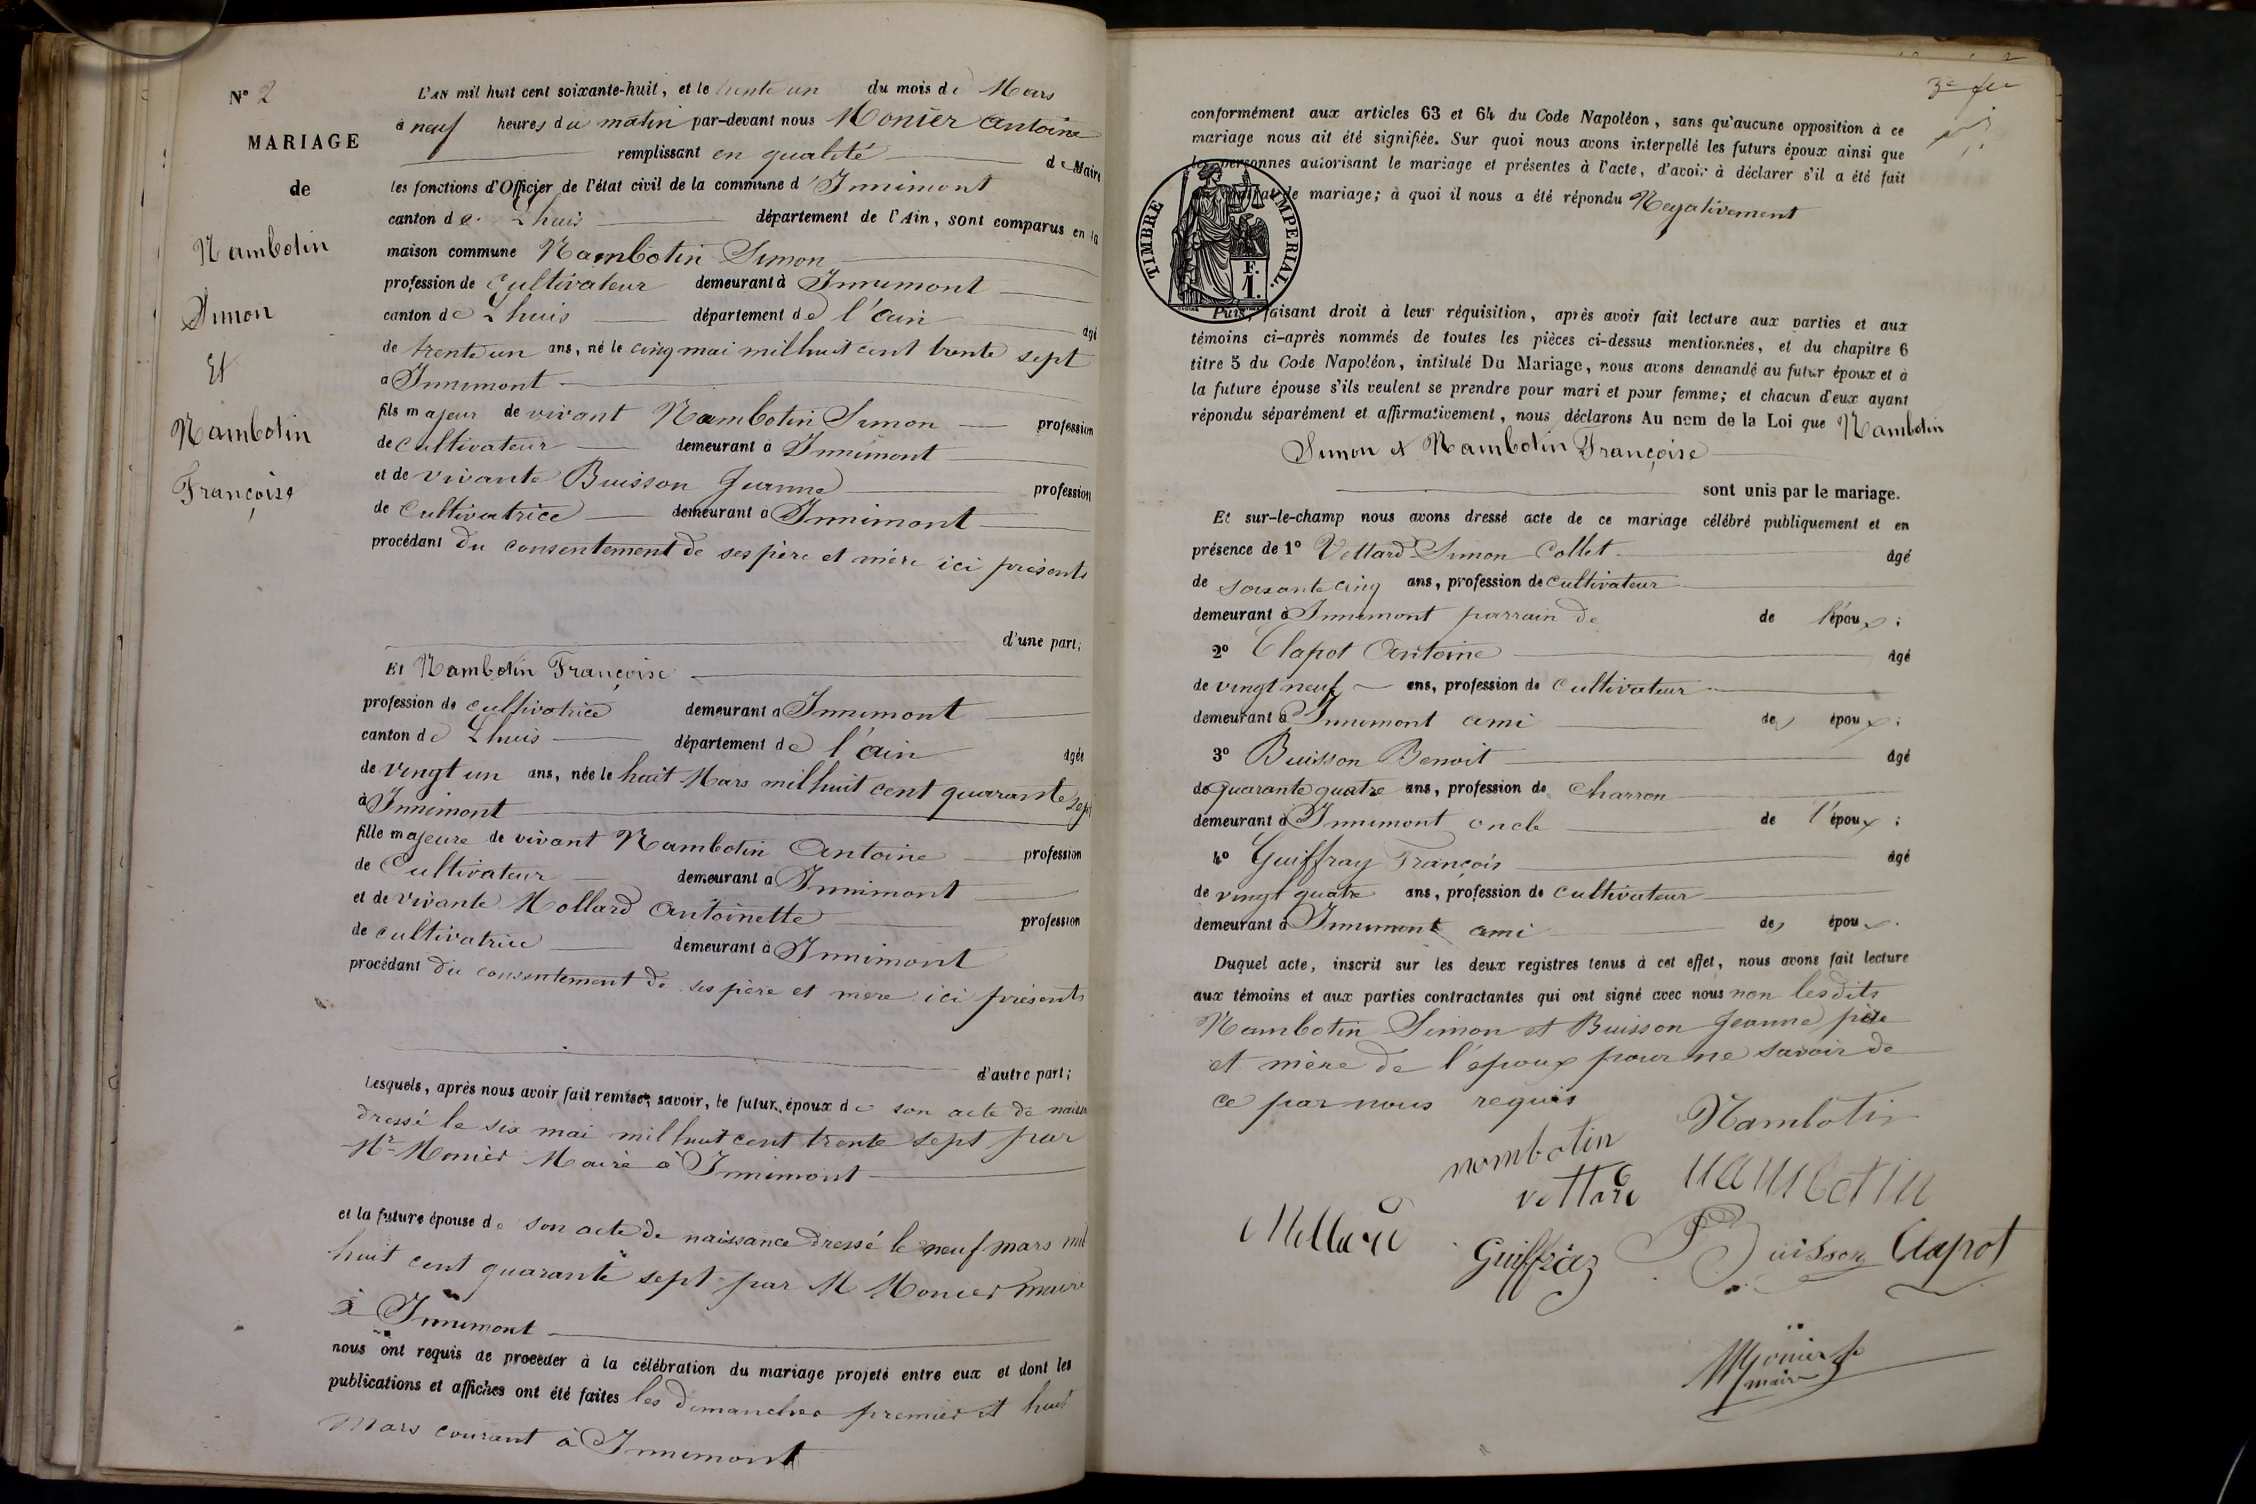 N° 2
MARIAGE
de
Nambotin
Simon
Et
Nambotin
Françoise
L'AN mil huit cent soixante-huit, et le trente un du mois de Mars
à neuf heures du matin par-devant nous Monier Antoine
remplissant en qualité de Maire
les fonctions d'Officier de l'état civil de la commune d'Innimont
canton de Lhuis département de l'Ain, sont comparus en la
maison commune Nambotin Simon
profession de Cultivateur demeurant à Innimont
canton de Lhuis département de l'ain âgé
de trente un ans, né le cinq mai mil huit cent trente sept
à Innimont
fils majeur de vivant Nambotin Simon profession
de cultivateur demeurant à Innimont
et de vivante Buisson Jeanne profession
de Cultivatrice demeurant à Innimont
procédant du consentement de ses père et mère ici présents
d'une part;
Et Nambotin Françoise
profession de cultivatrice demeurant à Innimont
canton de Lhuis département de l'ain âgée
de vingt un ans, née le huit Mars mil huit cent quarante sept
à Innimont
fille majeure de vivant Nambotin Antoine profession
de Cultivateur demeurant à Innimont
et de vivante Mollard Antoinette profession
de cultivatrice demeurant à Innimont
procédant du consentement de ses père et mère ici présents
d'autre part;
Lesquels, après nous avoir fait remise, savoir, le futur époux de son acte de naiss
dressé le six mai mil huit cent trente sept par
Mr Monier Maire à Innimont
et la future épouse de son acte de naissance dressé le neuf mars mil
huit cent quarante sept par M Monier maire
à Innimont
nous ont requis de procéder à la célébration du mariage projeté entre eux et dont les
publications et affiches ont été faites les dimanches premier et huit
Mars courant à Innimont
conformément aux articles 63 et 64 du Code Napoléon, sans qu'aucune opposition à ce
mariage nous ait été signifiée. Sur quoi nous avons interpellé les futurs époux ainsi que
les personnes autorisant le mariage et présentes à l'acte, d'avoir à déclarer s'il a été fait
de mariage; à quoi il nous a été répondu Negativement
TIMBRE IMPERIAL.
F.
1.
Puis, faisant droit à leur réquisition, après avoir fait lecture aux parties et aux
témoins ci-après nommés de toutes les pièces ci-dessus mentionnées, et du chapitre 6
titre 5 du Code Napoléon, intitulé Du Mariage, nous avons demandé au futur époux et à
la future épouse s'ils veulent se prendre pour mari et pour femme; et chacun d'eux ayant
répondu séparément et affirmativement, nous déclarons Au nom de la Loi que Nambotin
Simon et Nambotin Françoise
sont unis par le mariage.
Et sur-le-champ nous avons dressé acte de ce mariage célébré publiquement et en
présence de 1° Vettard Simon Collet âgé
de soixante cinq ans, profession de cultivateur
demeurant à Innimont parrain de de l'époux;
2° Clapot Antoine âgé
de vingt neuf ans, profession de cultivateur
demeurant à Innimont ami des époux;
3° Buisson Benoit âgé
de quarante quatre ans, profession de charron
demeurant à Innimont oncle de l'époux;
4° Guiffray François âgé
de vingt quatre ans, profession de cultivateur
demeurant à Innimont ami des époux.
Duquel acte, inscrit sur les deux registres tenus à cet effet, nous avons fait lecture
aux témoins et aux parties contractantes qui ont signé avec nous non les dits
Nambotin Simon et Buisson Jeanne père
et mère de l'époux pour ne savoir de
ce par nous requis
Nambotin
nombotin
nambotin
vettard
Mollard
Guiffraz
Buisson
Clapot
Monier
maire